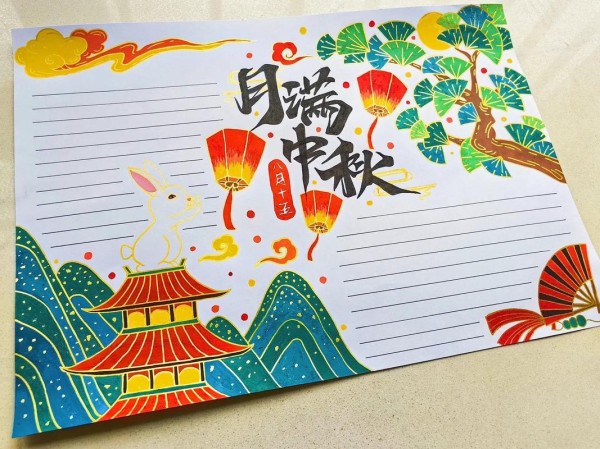 月满
中秋
八月十五